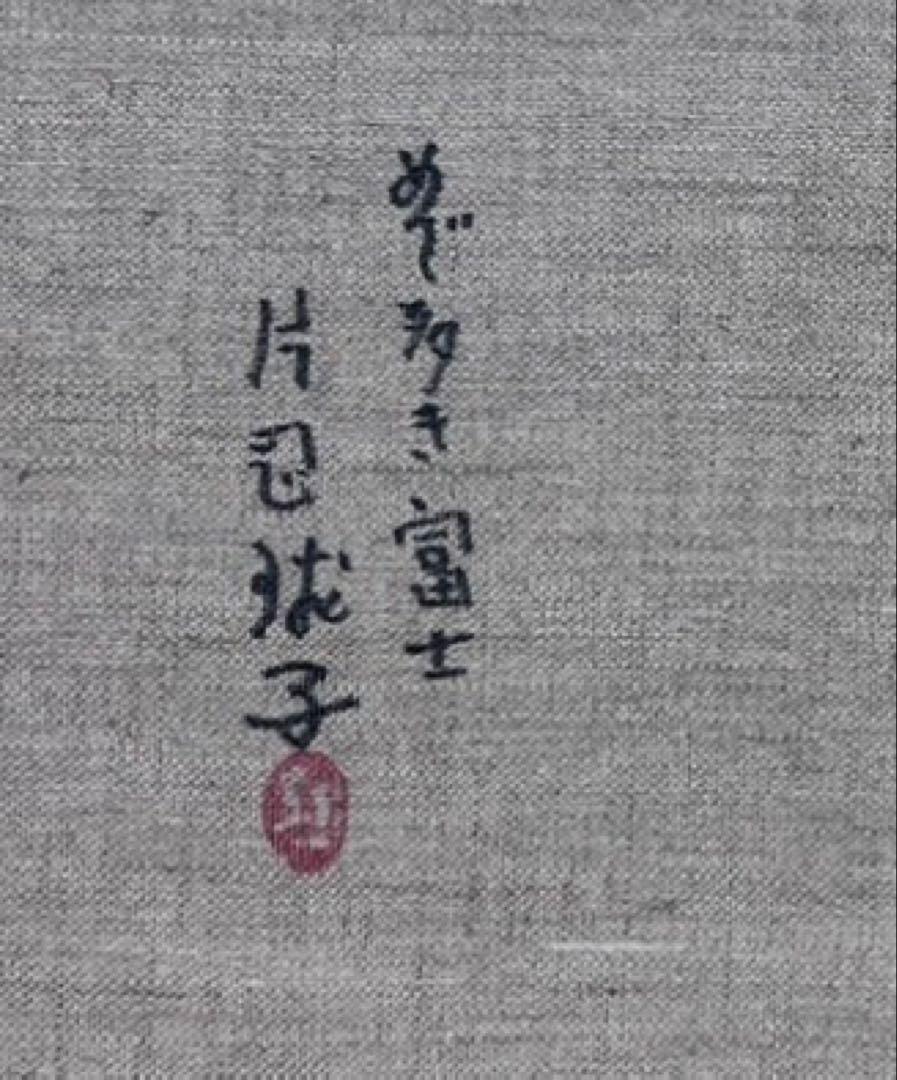 めで多き富士
片岡球子